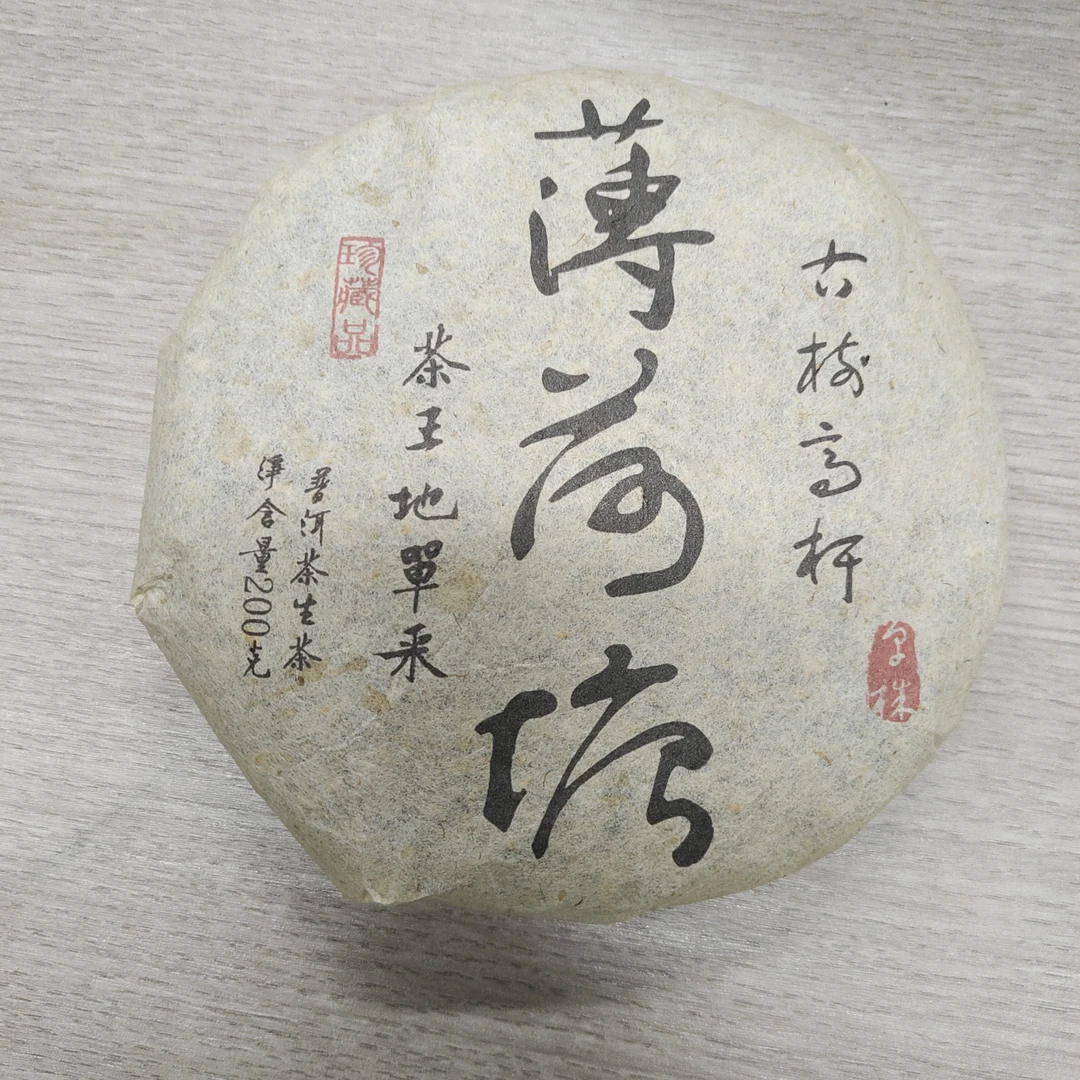 古树高杆
薄荷塘
茶王地單采
珍藏品
普洱茶生茶
淨含量200克